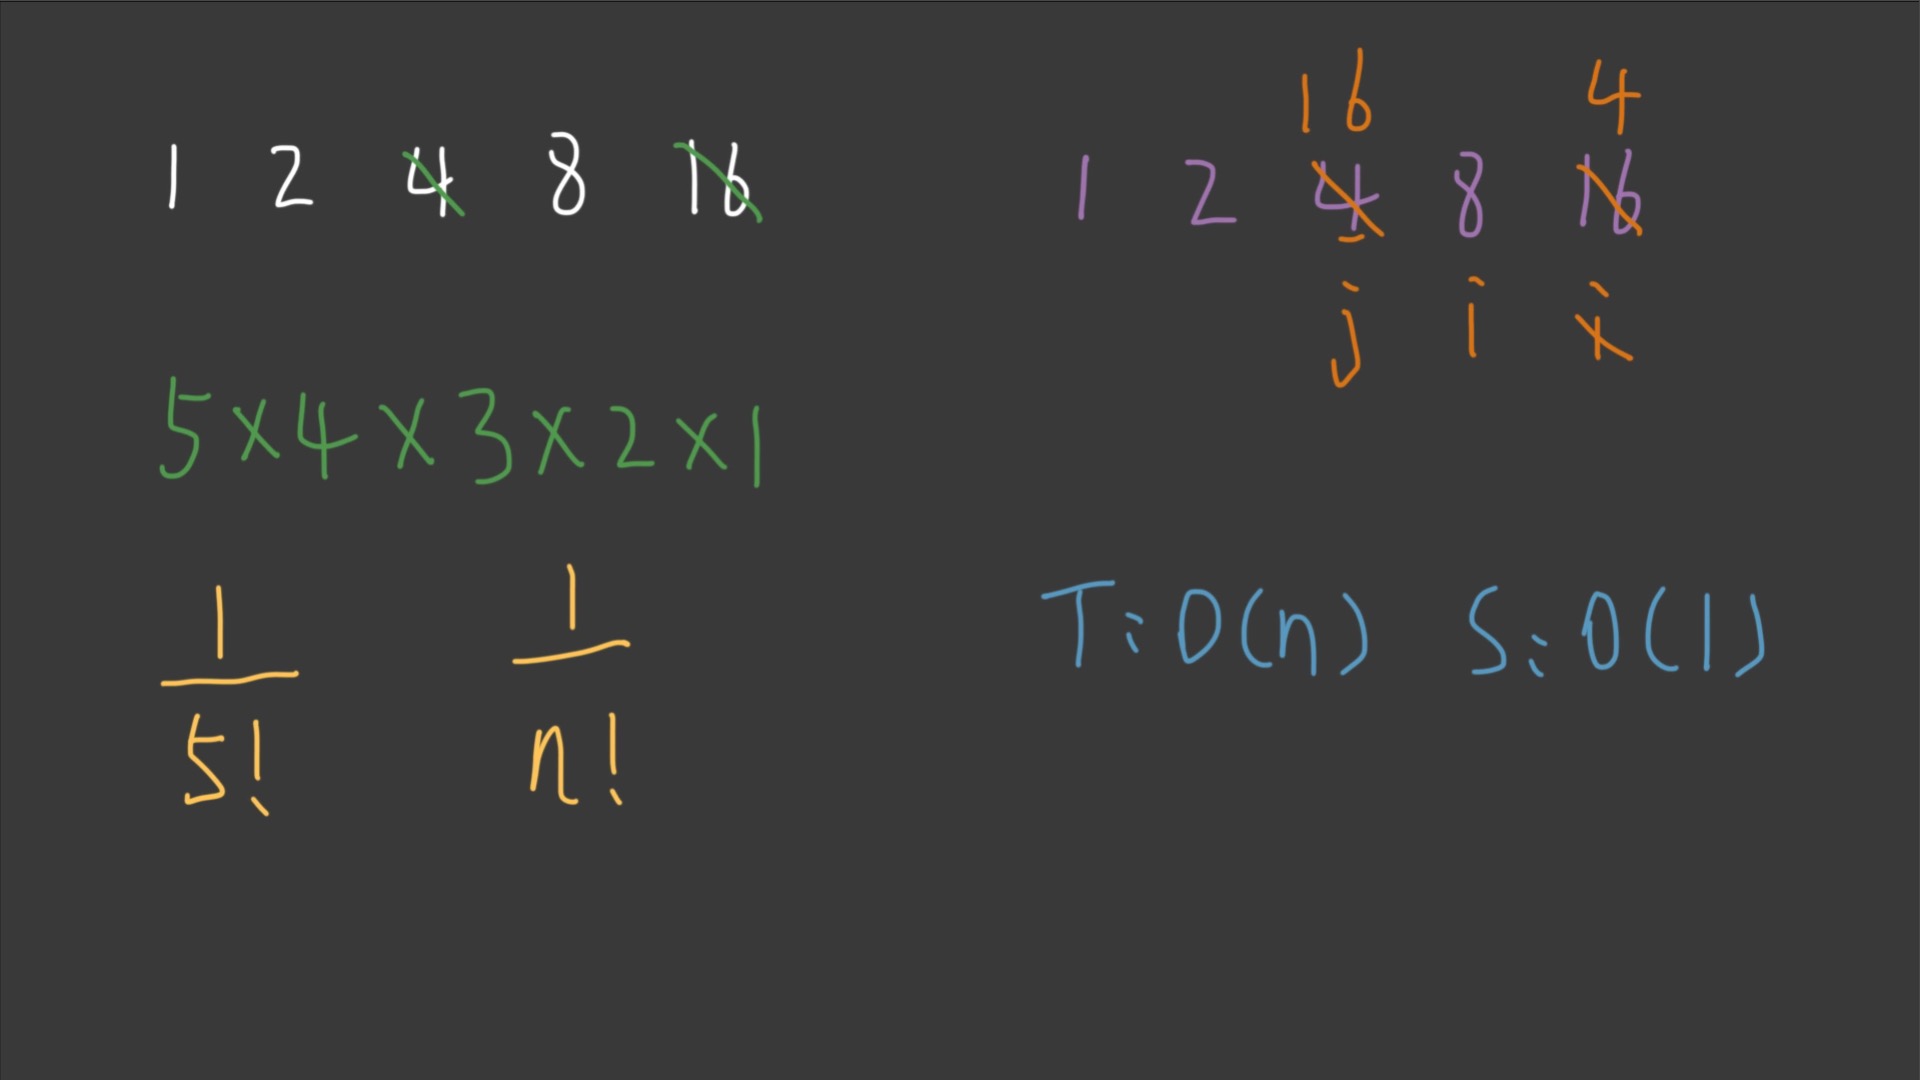 1 2 4 8 16
5 x 4 x 3 x 2 x 1
1
5!
1
n!
16 4
1 2 4 8 16
j i i
T: O(n) S: O(1)